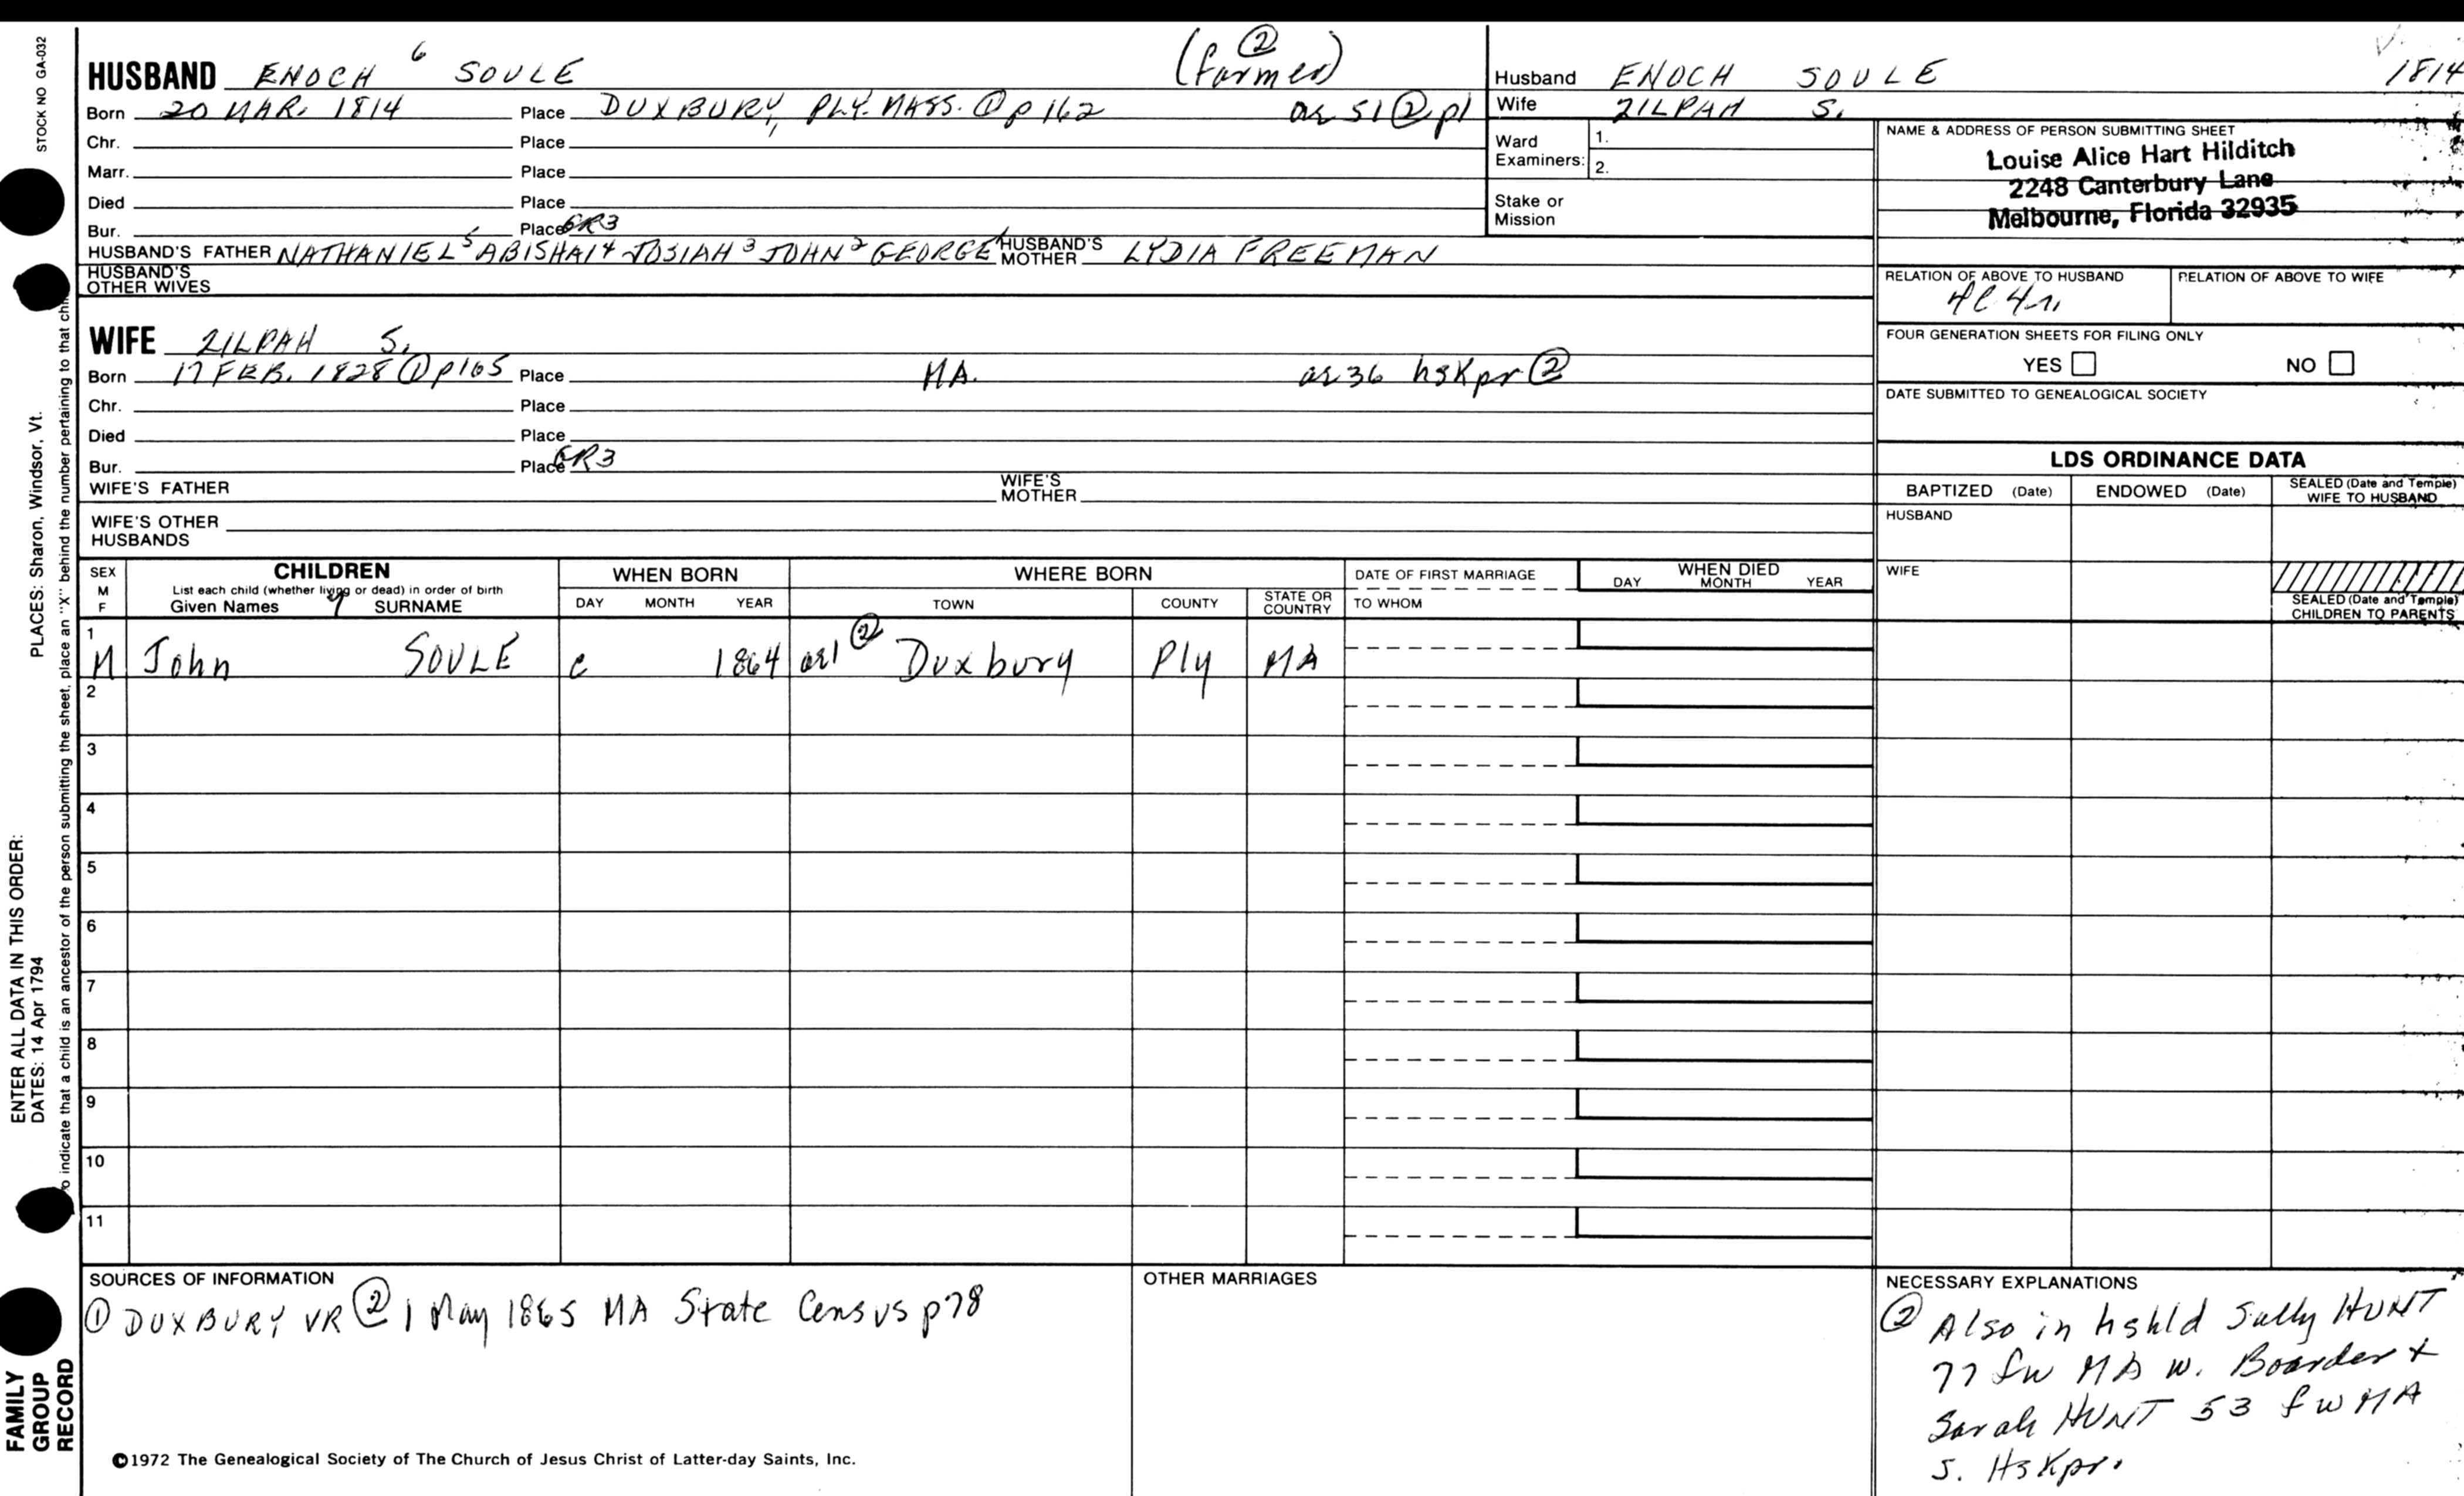 STOCK NO GA-032
HUSBAND ENOCH 6 SOULE (farmer) ②
Born 20 MAR. 1814 Place DUXBURY, PLY. MASS. ① p 162 ae 51 ② p1
Chr. Place
Marr. Place
Died Place
Bur. Place GR3
HUSBAND'S FATHER NATHANIEL 5 ABISHAI 4 JOSIAH 3 JOHN 2 GEORGE 1 HUSBAND'S MOTHER LYDIA FREEMAN
HUSBAND'S OTHER WIVES
WIFE ZILPAH S.
Born 17 FEB. 1828 ① p165 Place MA. ae 36 hskpr ②
Chr. Place
Died Place
Bur. Place GR3
WIFE'S FATHER WIFE'S MOTHER
WIFE'S OTHER HUSBANDS
Husband ENOCH SOULE 1814
Wife ZILPAH S.
Ward Examiners: 1.
2.
Stake or Mission
NAME & ADDRESS OF PERSON SUBMITTING SHEET
Louise Alice Hart Hilditch
2248 Canterbury Lane
Melbourne, Florida 32935
RELATION OF ABOVE TO HUSBAND RELATION OF ABOVE TO WIFE
4C 4r
FOUR GENERATION SHEETS FOR FILING ONLY
YES NO
DATE SUBMITTED TO GENEALOGICAL SOCIETY
LDS ORDINANCE DATA
BAPTIZED (Date) ENDOWED (Date) SEALED (Date and Temple) WIFE TO HUSBAND
HUSBAND
WIFE
SEALED (Date and Temple) CHILDREN TO PARENTS
SEX M F CHILDREN WHEN BORN WHERE BORN DATE OF FIRST MARRIAGE WHEN DIED
List each child (whether living or dead) in order of birth
Given Names 7 SURNAME DAY MONTH YEAR TOWN COUNTY STATE OR COUNTRY TO WHOM DAY MONTH YEAR
1 M John SOULE c 1864 ae1 ② Duxbury Ply MA
2
3
4
5
6
7
8
9
10
11
SOURCES OF INFORMATION
① DUXBURY VR ② 1 May 1865 MA State Census p78
OTHER MARRIAGES
NECESSARY EXPLANATIONS
② Also in hshld Sally HUNT
77 fw MA w. Boarder +
Sarah HUNT 53 fw MA
S. HsKpr.
©1972 The Genealogical Society of The Church of Jesus Christ of Latter-day Saints, Inc.
FAMILY GROUP RECORD
ENTER ALL DATA IN THIS ORDER:
DATES: 14 Apr 1794 PLACES: Sharon, Windsor, Vt.
indicate that a child is an ancestor of the person submitting the sheet, place an "X" behind the number pertaining to that